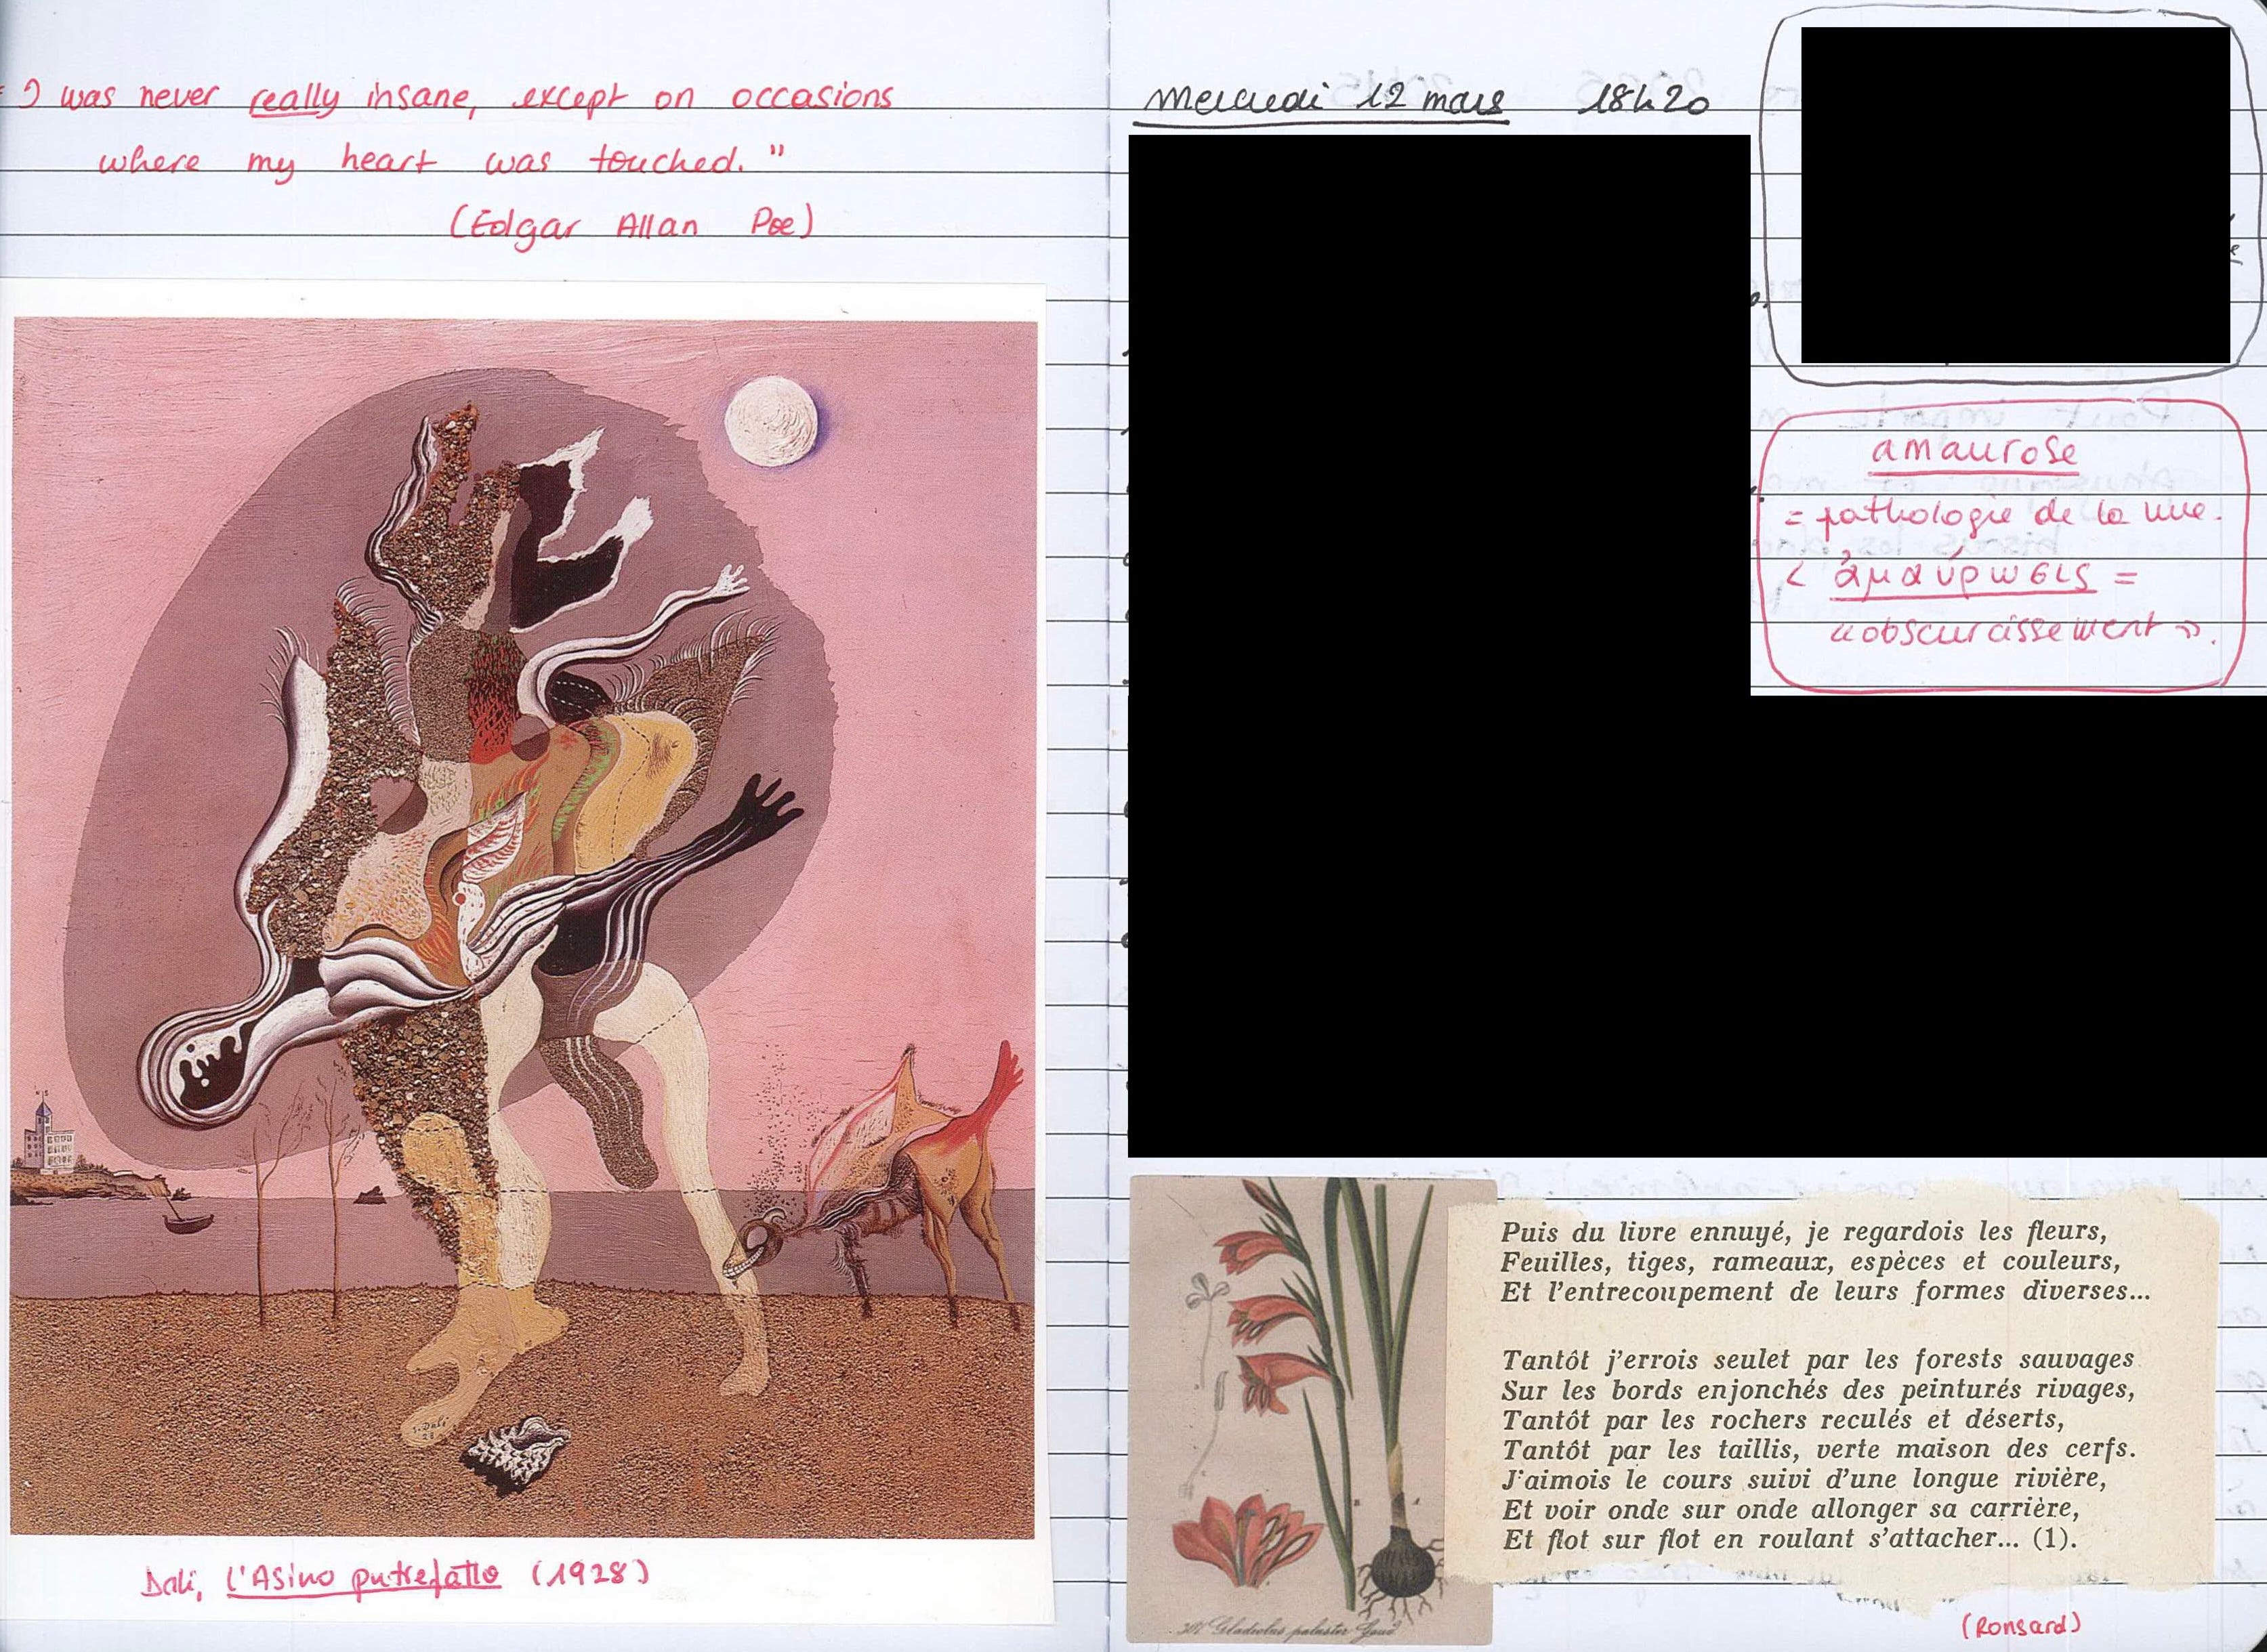 I was never really insane, except on occasions
where my heart was touched."
(Edgar Allan Poe)
S. Dalí
28
Dali, L'Asino putrefatto (1928)
mercredi 12 mars 18h20
amaurose
= pathologie de la vue.
< ἀμαύρωσις =
«obscurcissement».
Gladiolus paluster Gaud
Puis du livre ennuyé, je regardois les fleurs,
Feuilles, tiges, rameaux, espèces et couleurs,
Et l'entrecoupement de leurs formes diverses...
Tantôt j'errois seulet par les forests sauvages
Sur les bords enjonchés des peinturés rivages,
Tantôt par les rochers reculés et déserts,
Tantôt par les taillis, verte maison des cerfs.
J'aimois le cours suivi d'une longue rivière,
Et voir onde sur onde allonger sa carrière,
Et flot sur flot en roulant s'attacher... (1).
(Ronsard)